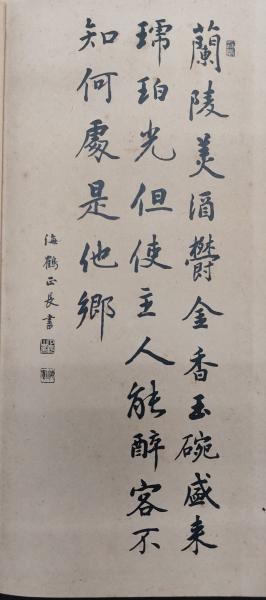 蘭陵美酒鬱金香玉碗盛来
琥珀光但使主人能醉客不
知何處是他鄉
海鶴正長書